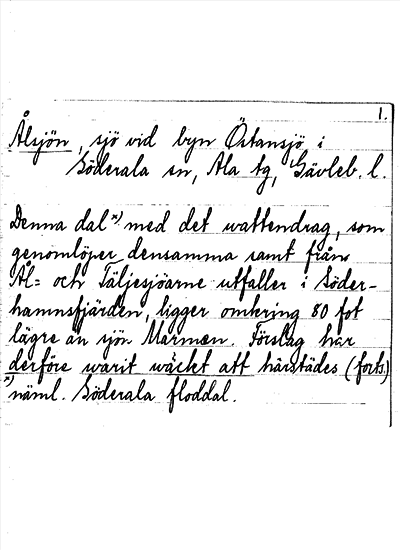 1.
Ålsjön, sjö vid byn Östansjö i
Söderala sn, Ala tg, Gävleb. l.
Denna dal x) med det wattendrag, som
genomlöper densamma samt från
Ål- och Täljesjöarne utfaller i Söder-
hamnsfjärden, ligger omkring 80 fot
lägre än sjön Marmen. Förslag har
derföre warit wäckt att härstädes (forts.)
x) näml. Söderala floddal.